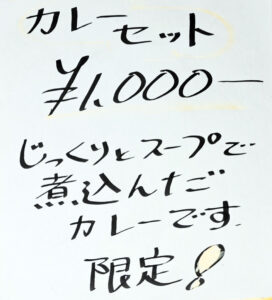 カレー
セット
¥1,000ー
じっくりとスープで
煮込んだ
カレーです.
限定!